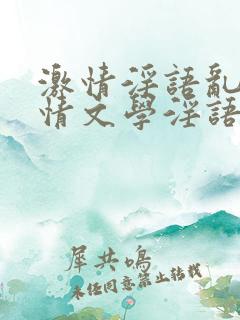 激情淫語亂
情文學淫語
犀共鳴
未經同意禁止轉載